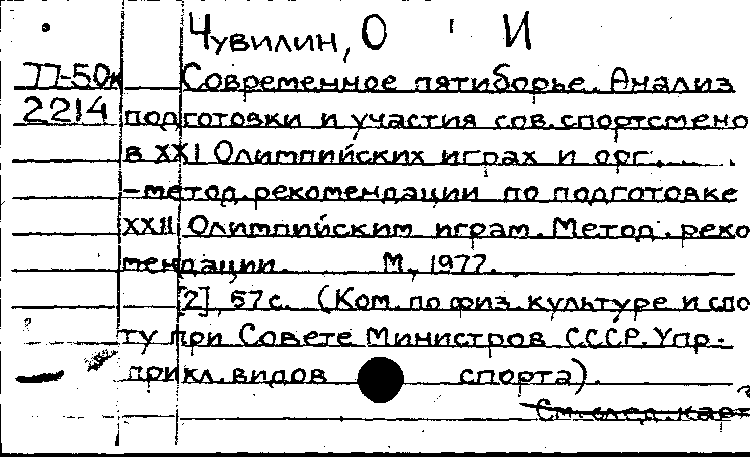 Чувилин, О И
П-50к Современное пятиборье. Анализ
2214 подготовки и участия сов. спортсмено
в XXI Олимпийских играх и орг.
-метод. рекомендации по подготовке
XXII Олимпийским играм. Метод. реко
мендации. М., 1977.
[2], 57 с. (Ком. по физ. культуре и спо
ту при Совете Министров СССР. Упр.
прикл. видов спорта).
См. след. карт